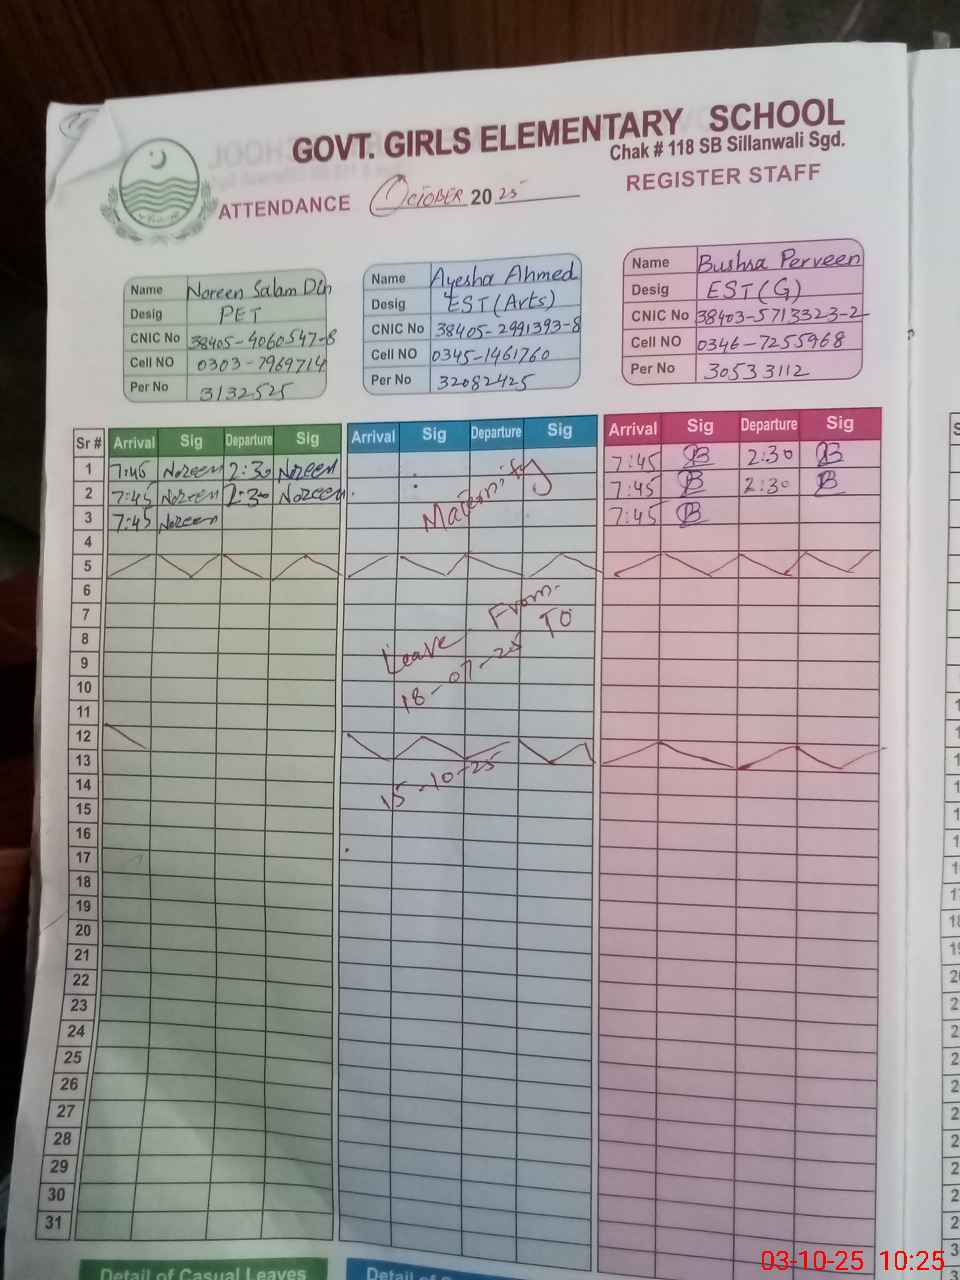 GOVT. GIRLS ELEMENTARY SCHOOL
Chak # 118 SB Sillanwali Sgd.
ATTENDANCE OCTOBER 20 25 REGISTER STAFF
Name Noreen Salam Din
Desig PET
CNIC No 38405-4060547-8
Cell NO 0303-7969714
Per No 3132525
Name Ayesha Ahmed
Desig EST (Arts)
CNIC No 38405-2991393-8
Cell NO 0345-1461760
Per No 32082425
Name Bushra Perveen
Desig EST (G)
CNIC No 38403-5713323-2
Cell NO 0346-7255968
Per No 30533112
Sr # Arrival Sig Departure Sig Arrival Sig Departure Sig Arrival Sig Departure Sig
1 7:45 Noreen 2:30 Noreen 7:45 B 2:30 B
2 7:45 Noreen 2:30 Noreen 7:45 B 2:30 B
3 7:45 Noreen 7:45 B
Maternity
4
5
6
7
Leave From
8
To
9
10
18-07-25
11
12
13
14
15-10-25
15
16
17
18
19
20
21
22
23
24
25
26
27
28
29
30
31
Detail of Casual Leaves
Detail of
03-10-25 10:25